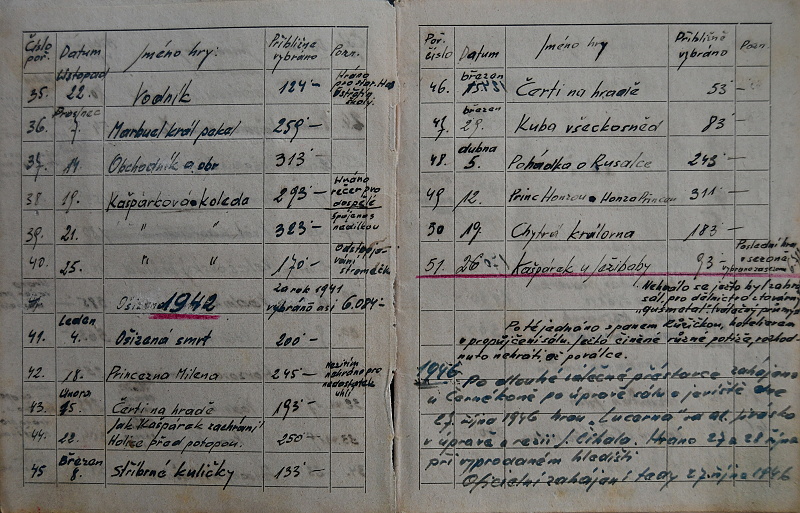 Číslo poř. Datum Jméno hry: Přibližně vybráno Pozn.
Listopad
35. 22. Vodník 124 – Hráno pro
školy.
Prosinec
36. 7. Marbuel král pekel 259 –
37. 14. Obchodník a obr 313 –
38. 19. Kašpárkova koleda 293 – Hráno večer pro dospělé
39. 21. " " 323 – Spojeno s nadílkou
40. 25. " " 170 –
stromečku
1942 za rok 1941 vybráno asi 6.084 –
Leden
41. 4. Ošizená smrt 200 –
42. 18. Princezna Milena 245 – nehráno pro nedostatek uhlí
Února
43. 15. Čerti na hradě 193 –
44. 22. Jak Kašpárek zachránil
Holice před potopou. 250
Březen
45 8. Stříbrné kuličky 133 –
Poř. číslo Datum Jméno hry Přibližně vybráno Pozn.
březen
46. Čerti na hradě 53 –
březen
47. 29. Kuba všeckosněd 83 –
dubna
48. 5. Pohádka o Rusalce 243 –
49 12. Princ Honzou a Honza Princem 311 –
50 19. Chytrá královna 183 –
51. 26 Kašpárek u Ježibaby 93 – Poslední hra v sezoně
Nehrálo se ježto byl zabrán
sál, pro dělnictvo továrny
Poté jednáno s panem Růžičkou, hotelierem
o propůjčení sálu. Ježto činěné různé potíže rozhod-
nuto nehráti, až po válce.
1946 Po dlouhé válečné přestávce zahájeno
u Černého koně po úpravě sálu a jeviště dne
27. října 1946 hrou "Lucerna" na sl. Jirásko
v úpravě a režii J. Cihala. Hráno 27 a 28 října
při vyprodaném hledišti
Oficielní zahájení tedy 27. října 1946